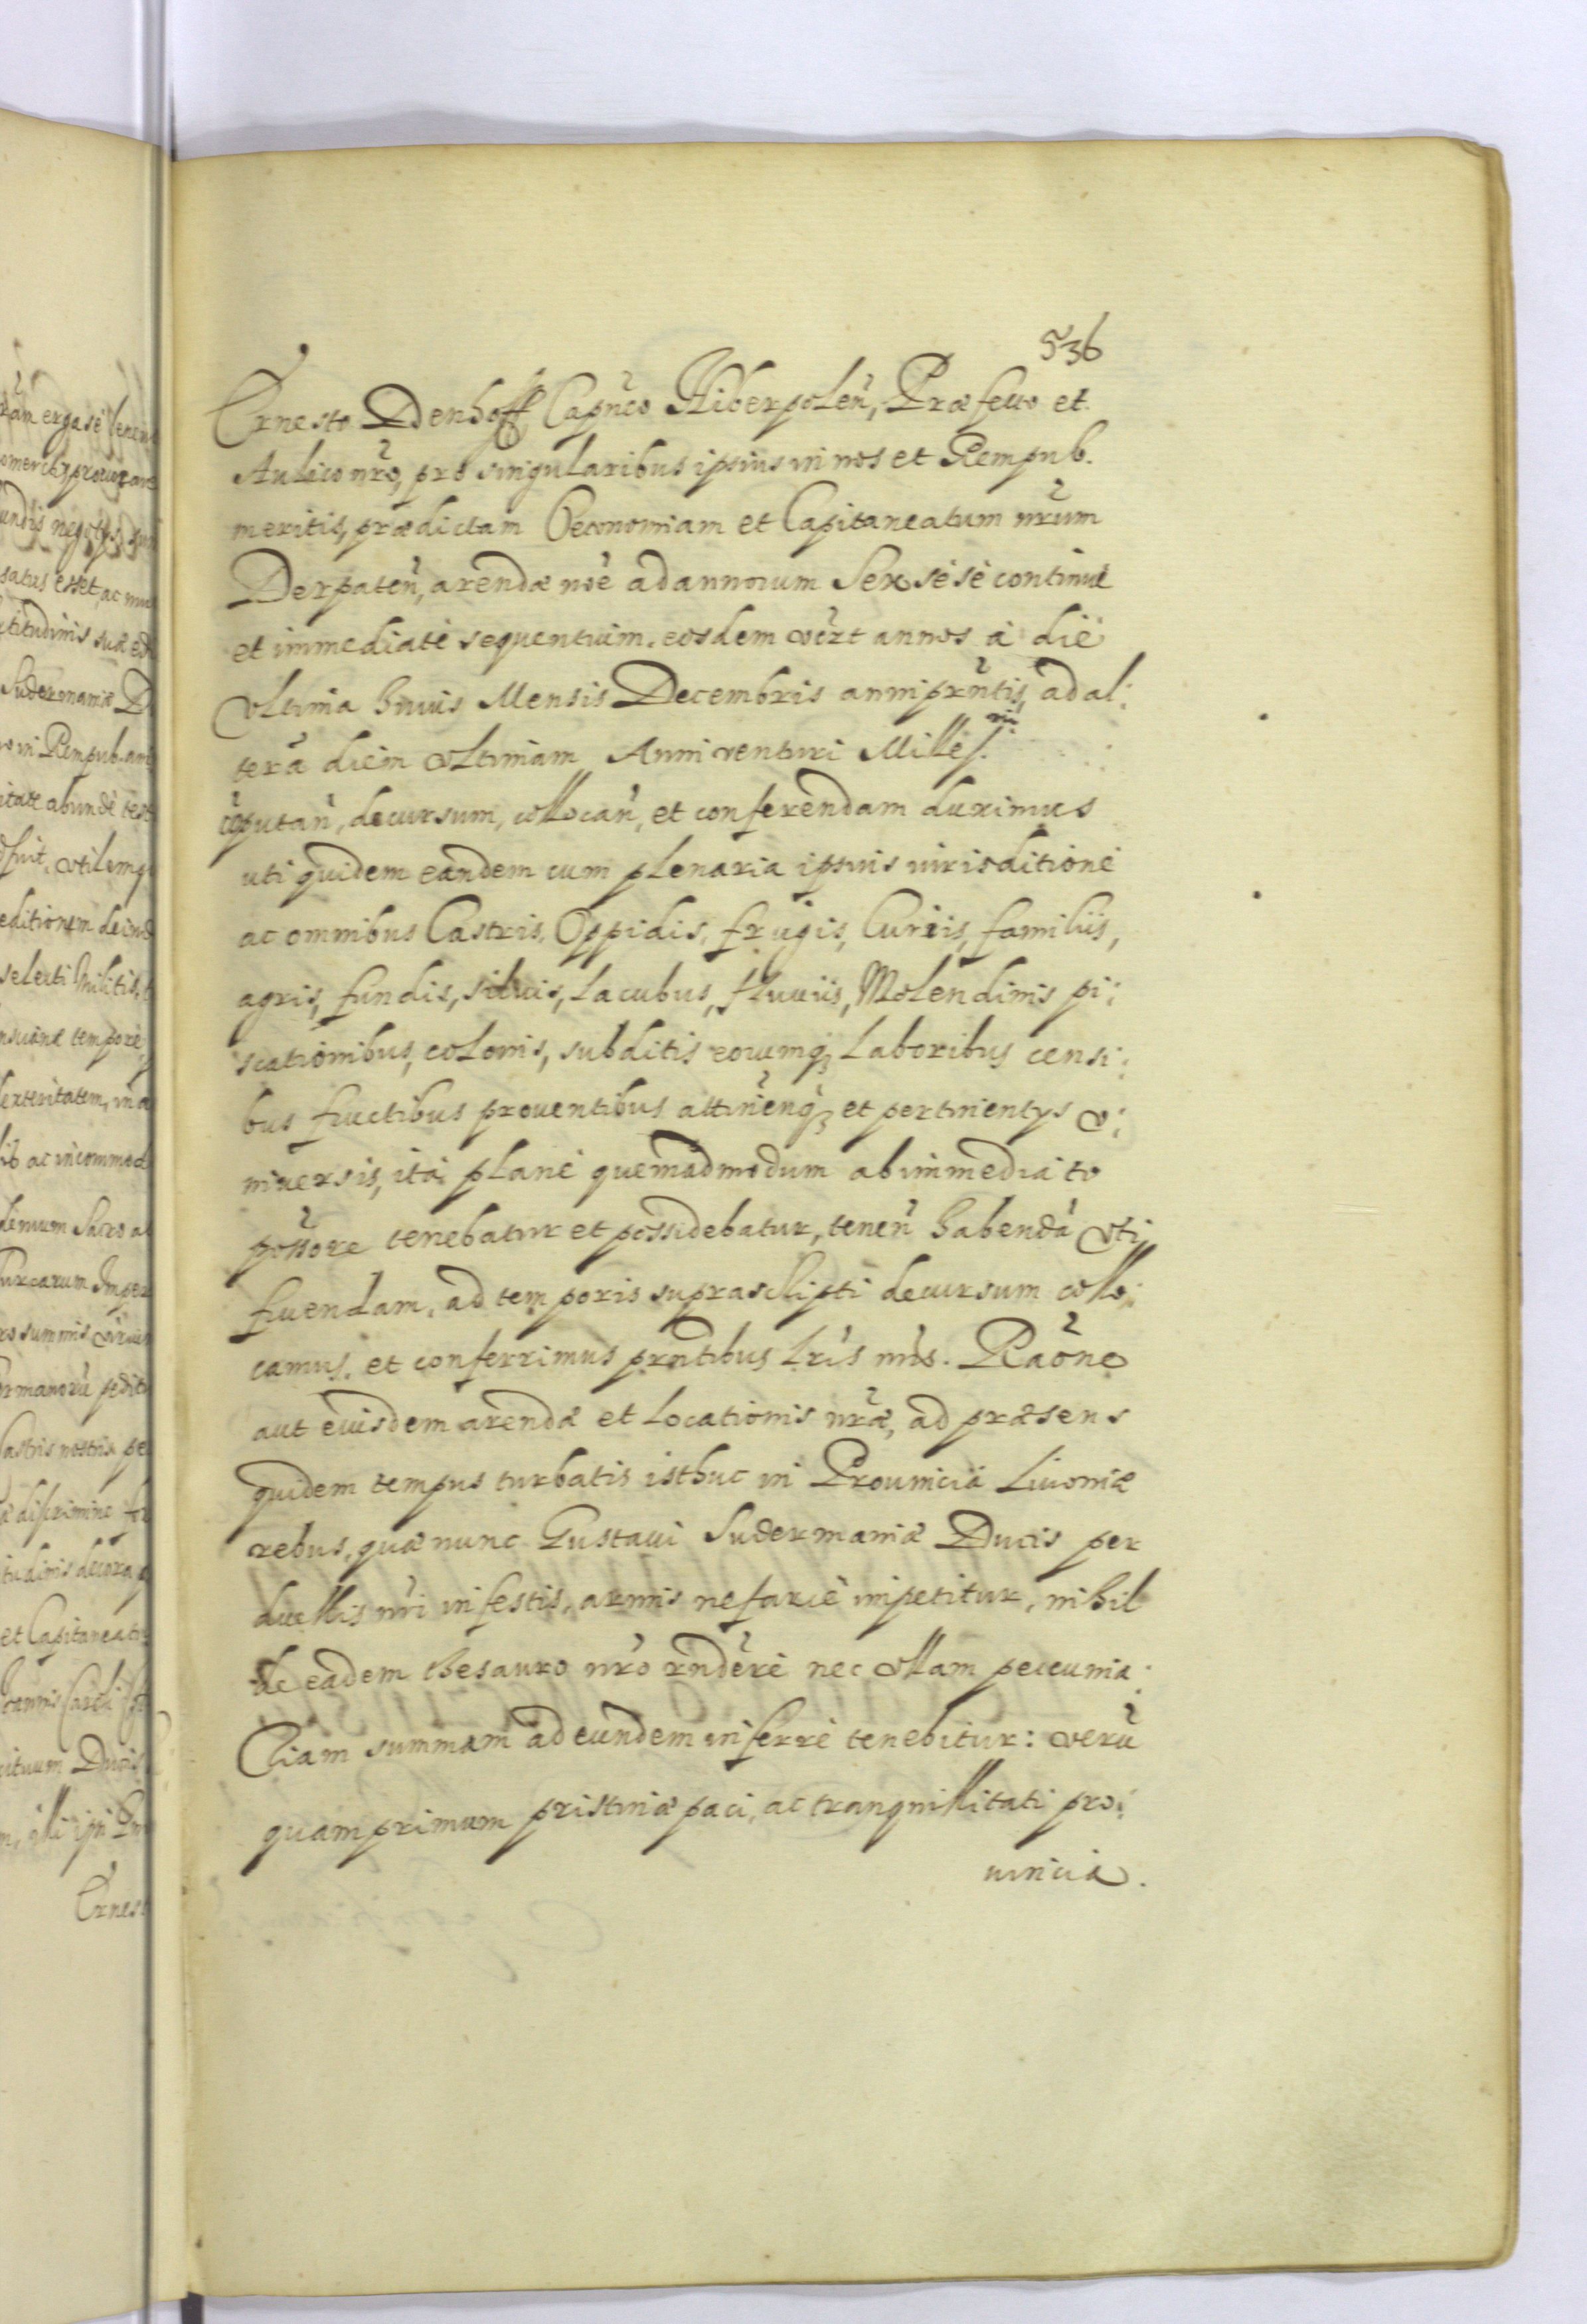 536
Ernesto Denhoff, Capnco Hiberpolen, Præfecto et
Aulico nro, pro singularibus ipsius in nos et Rempub.
meritis, prædictam Oeconomiam et Capitaneatum nrum
Derpaten, arendæ noe ad annorum Sex sese continue
et immediate sequentium. eosdem vert annos a die
vltima huius Mensis Decembris anni prntis, ad al:
tera diem vltimam Anni venturi Milles.
coputan, decursum, collocan, et conferendam duximus
uti quidem eandem cum plenaria ipsius iurisditione
ac omnibus Castris, Oppidis, frugis, Curiis, familiis,
agris, fundis, siluis, lacubus, fluuiis, Molendinis pi:
scationibus, colonis, subditis eorumq laboribus censi:
bus fructibus prouentibus attinenq et pertinentys v:
niuersis, ita plane quemadmodum ab immediato
possore tenebatur et possidebatur, tenen habenda vti
fruendam, ad temporis suprascripti decursum collo:
camus, et conferrimus prntibus lris nris. Raone
aut eiusdem arendæ et locationis nræ, ad præsens
quidem tempus turbatis isthuc in Prouincia Liuoniæ
rebus, quæ nunc Gustaui Sudermaniæ Ducis per
duellis nri infestis, armis nefarie impetitur, nihil
de eadem thesauro nro rndere nec vllam peccunia:
Eliam summam ad eundem inferre tenebitur: veru
quamprimum pristinæ paci, ac tranquillitati pro:
uincia.